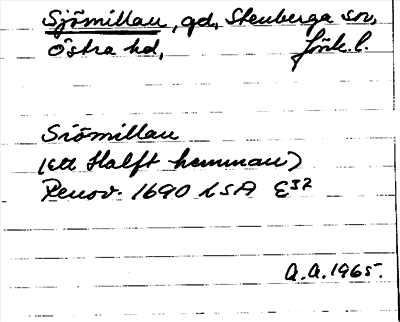 Sjömillan, gd, Stenberga sn,
Östra hd, Jönk. l.
Siömillan
(ett Halft hemman)
Renov. 1690 LSA E37
A.A. 1965.